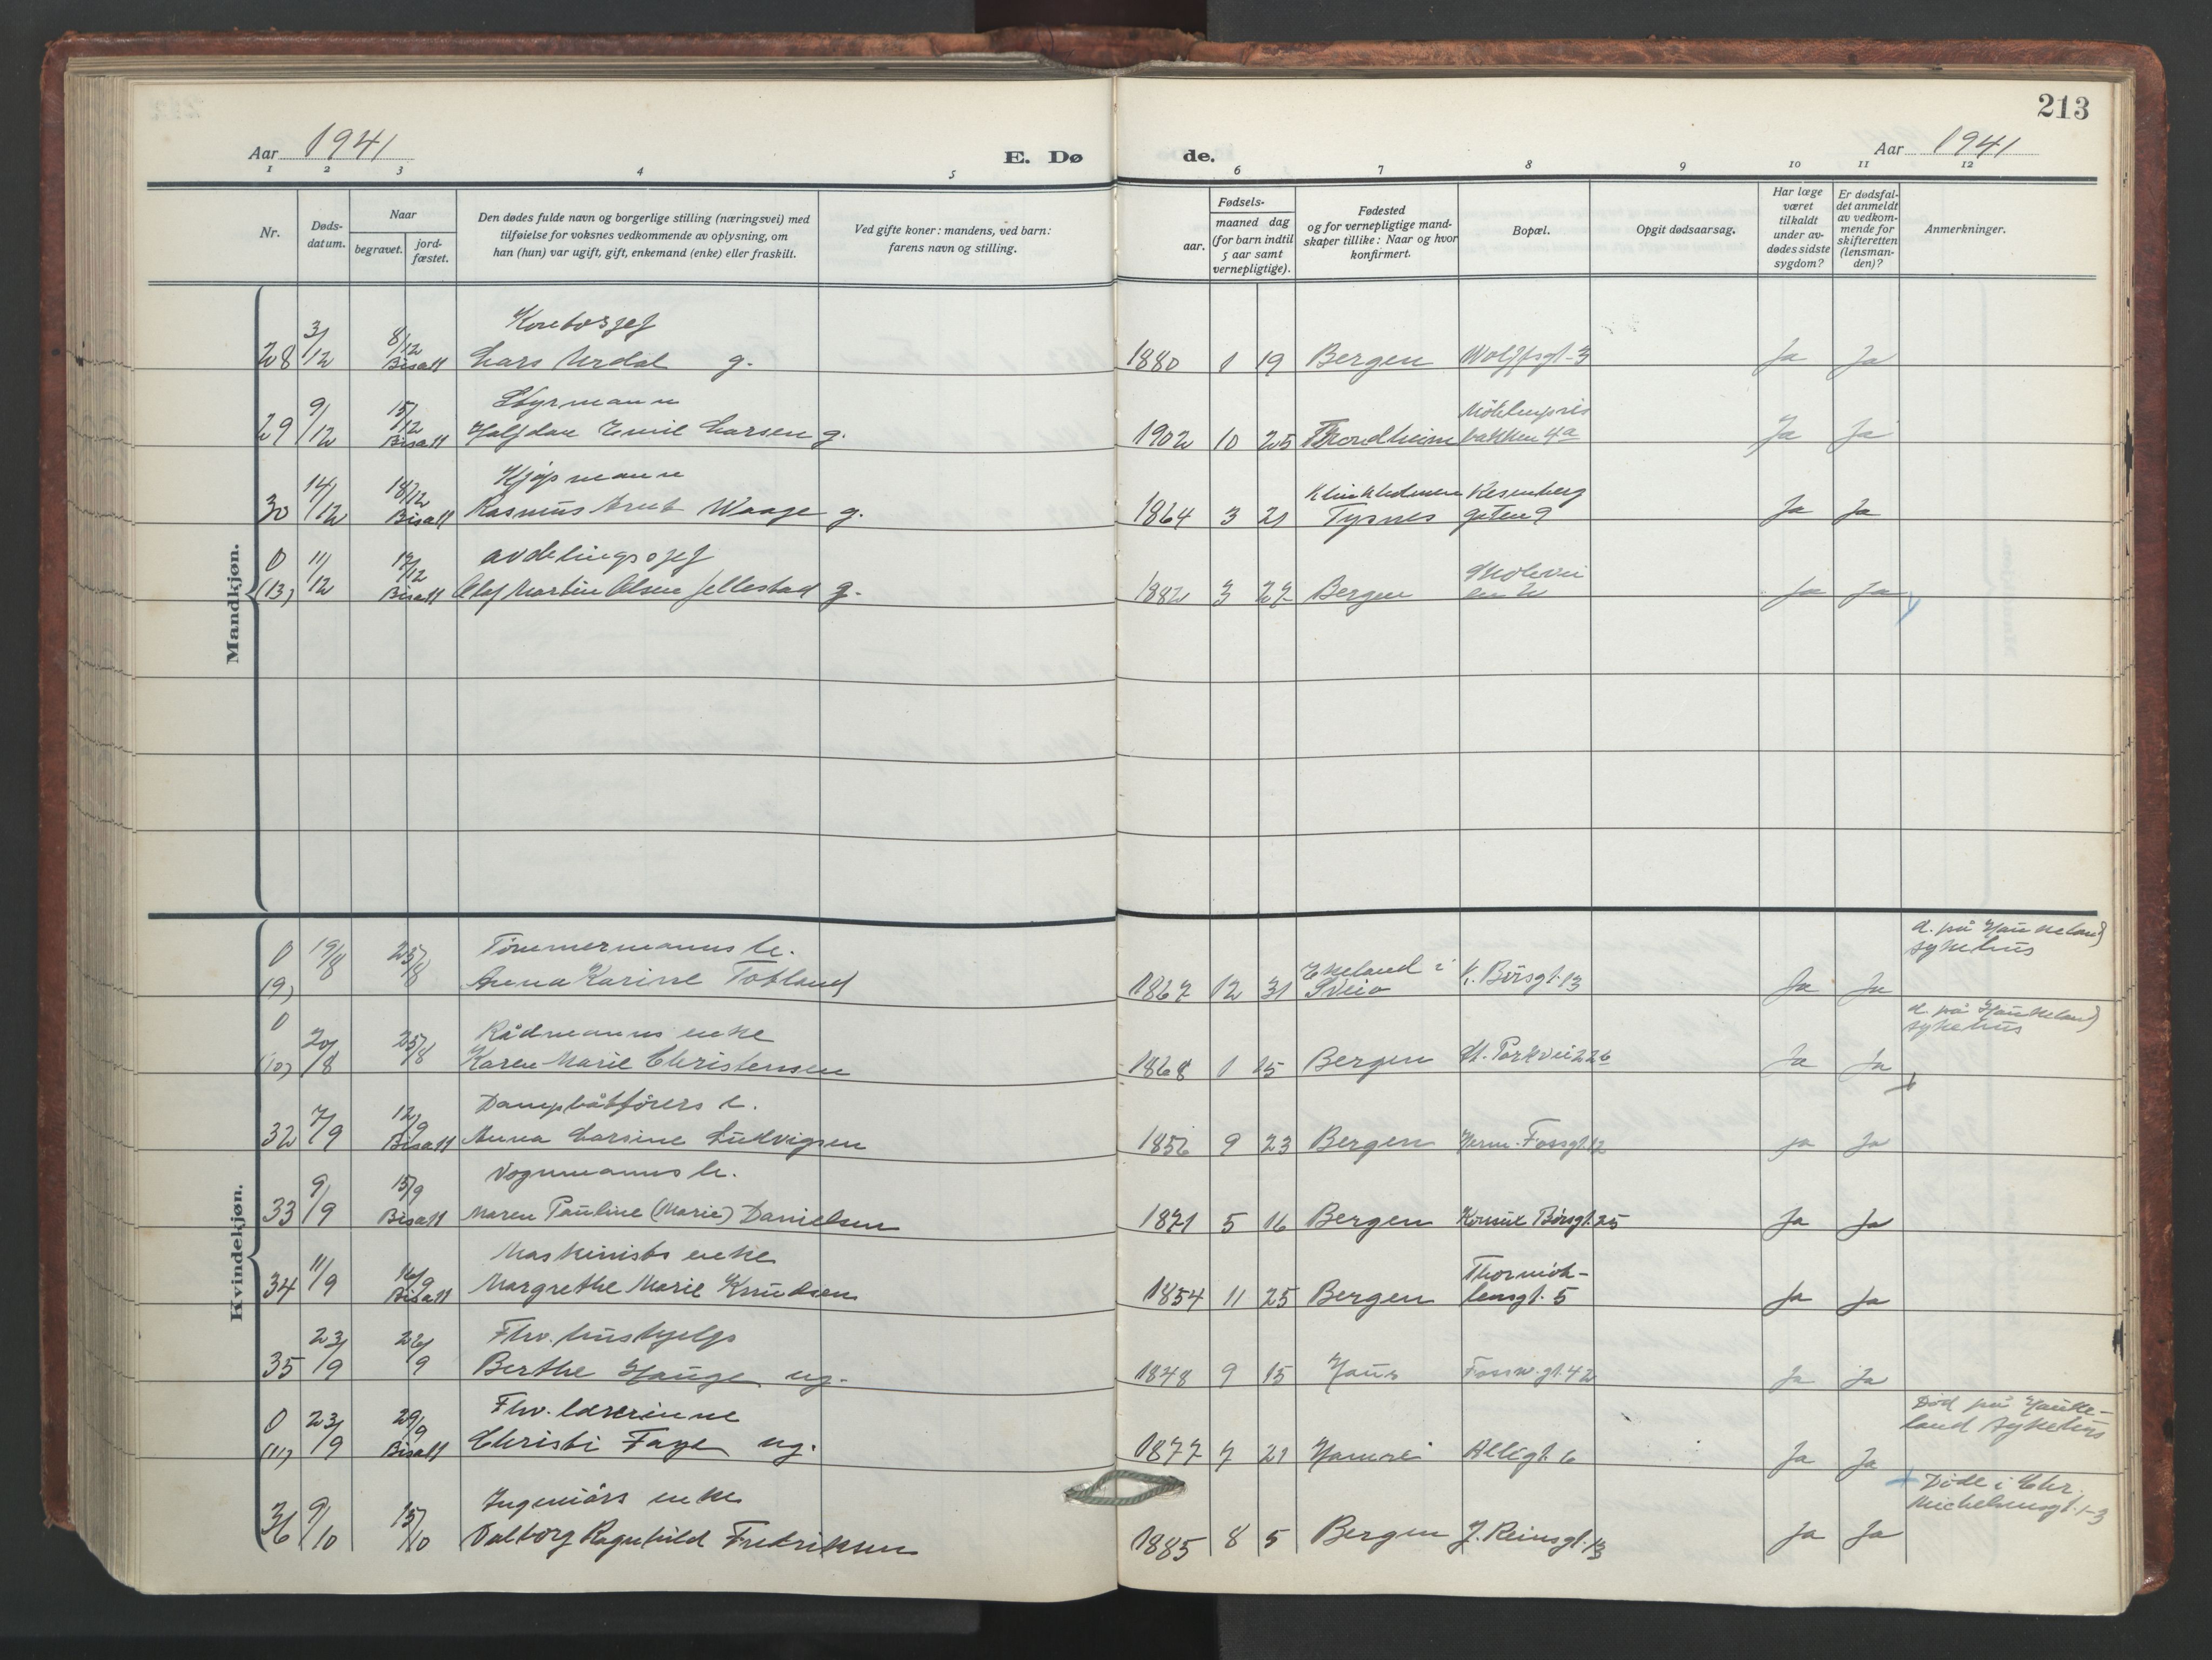 213
Aar 1941
E. Dø
de.
Aar 1941
1 2 3 4 5 6 7 8 9 10 11 12
Nr.
Døds-
datum.
Naar
begravet.
jord-
fæstet.
Den dødes fulde navn og borgerlige stilling (næringsvei) med
tilføielse for voksnes vedkommende av oplysning, om
han (hun) var ugift, gift, enkemand (enke) eller fraskilt.
Ved gifte koner: mandens, ved barn:
farens navn og stilling.
Fødsels-
aar.
maaned dag
(for barn indtil
5 aar samt
vernepligtige).
Fødested
og for vernepligtige mand-
skaper tillike: Naar og hvor
konfirmert.
Bopæl.
Opgit dødsaarsag.
Har læge
været
tilkaldt
under av-
dødes sidste
sygdom?
Er dødsfal-
det anmeldt
av vedkom-
mende for
skifteretten
(lensman-
den)?
Anmerkninger.
Mandkjøn.
Kontorsjef
28 3/12 8/12 Bisatt Lars Urdal g. 1880 1 19 Bergen Wolffsgt. 3 Ja Ja
Styrmann
Møhlenpris
29 9/12 15/12 Bisatt Halfdan Emil Larsen g. 1902 10 25 Trondheim bakken 4a Ja Ja
Kjøpmann
30 14/12 18/12 Bisatt Rasmus Arent Waage g. 1864 3 21 Tysnes gaten 9 Ja Ja
avdelingssjef
0 (13) 11/12 17/12 Bisatt Olaf Martin Olsen Jellestad g. 1882 3 27 Bergen en 2 Ja Ja
Kvindekjøn.
Tømmermanns e.
d. på Haukeland
sykehus
0 (9) 19/8 25/8 Anna Karine Totland 1867 12 31 Ekeland i Sveio K. Børsgt. 13 Ja Ja
Rådmanns enke
d. på Haukeland
sykehus
0 (10) 20/8 25/8 Karen Marie Christensen 1868 1 15 Bergen St. Parkvei 22b Ja Ja
Dampbåtførers e.
32 7/9 12/9 Bisatt Anna Larsine Ludvigsen 1856 9 23 Bergen Herm. Fossgt. 12 Ja Ja
Vognmanns e.
33 9/9 15/9 Bisatt Maren Pauline (Marie) Danielsen 1871 5 16 Bergen Konsul Børsgt. 25 Ja Ja
Maskinists enke
Thormøh-
34 11/9 16/9 Bisatt Margrethe Marie Knudsen 1854 11 25 Bergen lensgt. 5 Ja Ja
Fhv. hushjelp
35 23/9 26/9 Berthe Hauge ug. 1848 9 15 Haus Fossw. gt. 42 Ja Ja
Fhv. lærerinne
Død på Hauke-
land sykehus
0 (11) 23/9 29/9 Bisatt Christi Faye ug. 1877 7 21 Hamre Allégt. 6 Ja Ja
Ingeniørs enke
Døde i Chr.
Michelsensgt. 1-3
36 9/10 15/10 Valborg Ragnhild Fredriksen 1885 8 5 Bergen J. Reinsgt. 13 Ja Ja